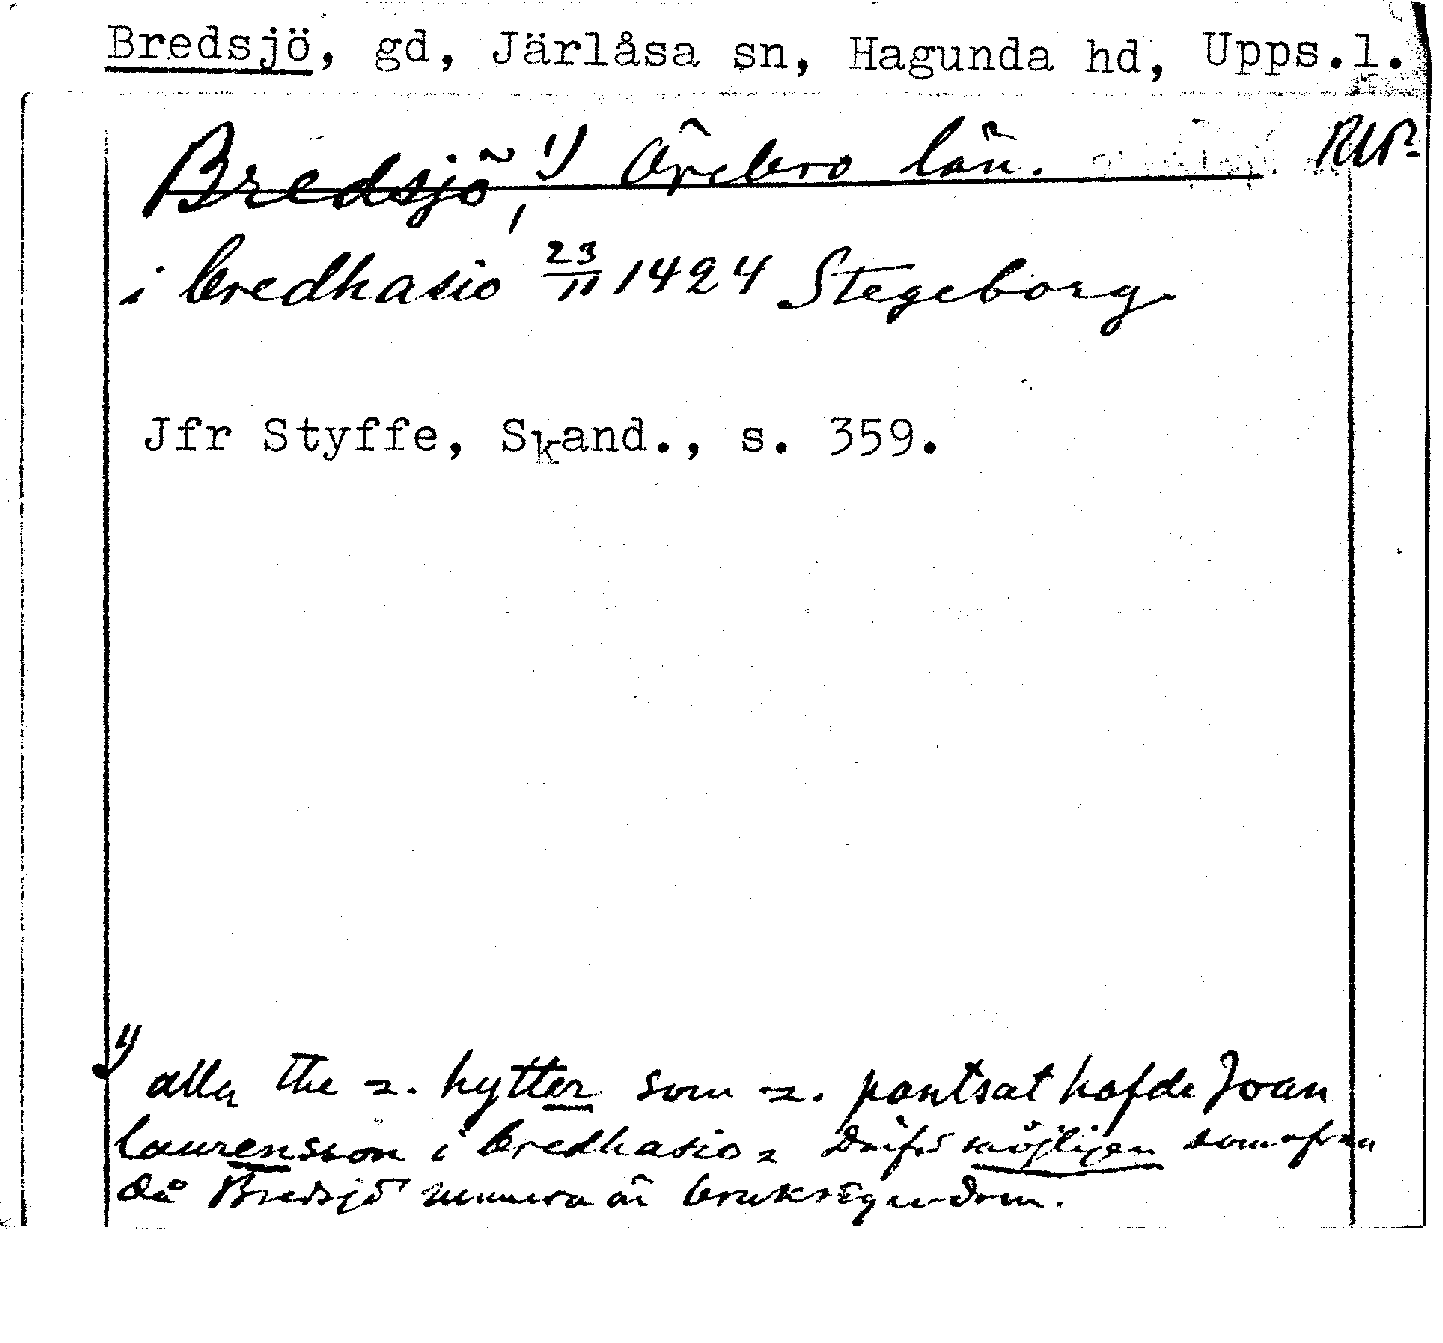 Bredsjö, gd, Järlåsa sn, Hagunda hd, Upps.l.
Bredsjö,¹⁾ Örebro län. RAP.
i bredhasio 23/11 1424 Stegeborg
Jfr Styffe, Skand., s. 359.
1) alla the hytter som pantsat hafde Joan
laurensson i bredhasio möjligen
då Bredsjö numera är bruksegendom.